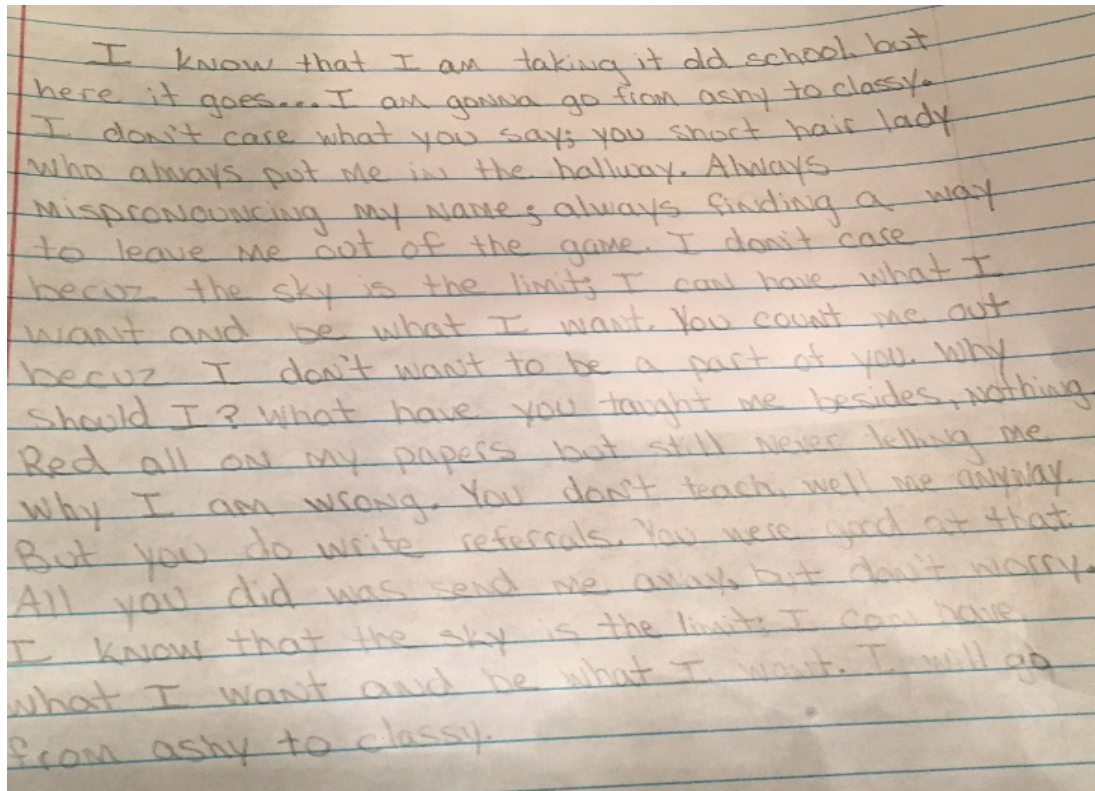 I know that I am taking it old school but
here it goes... I am gonna go from ashy to classy.
I don't care what you say; you short hair lady
who always put me in the hallway. Always
mispronouncing my name; always finding a way
to leave me out of the game. I don't care
becuz the sky is the limit; I can have what I
want and be what I want. You count me out
becuz I don't want to be a part of you. Why
should I? What have you taught me besides, nothing
Red all on my papers but still never telling me
why I am wrong. You don't teach, well me anyway.
But you do write referrals. You were good at that.
All you did was send me away, but don't worry.
I know that the sky is the limit; I can have
what I want and be what I want. I will go
from ashy to classy.